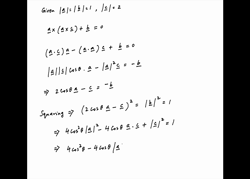 Given |a|=|b|=1, |c|=2
a×(a×c)+b=0
(a.c)a-(a.a)c+b=0
|a||c|cosθ a-|a|²c=-b
⇒ 2cosθ a-c=-b
Squaring ⇒ (2cosθ a-c)²=|b|²=1
⇒ 4cos²θ|a|²-4cosθ a.c+|c|²=1
⇒ 4cos²θ-4cosθ|a